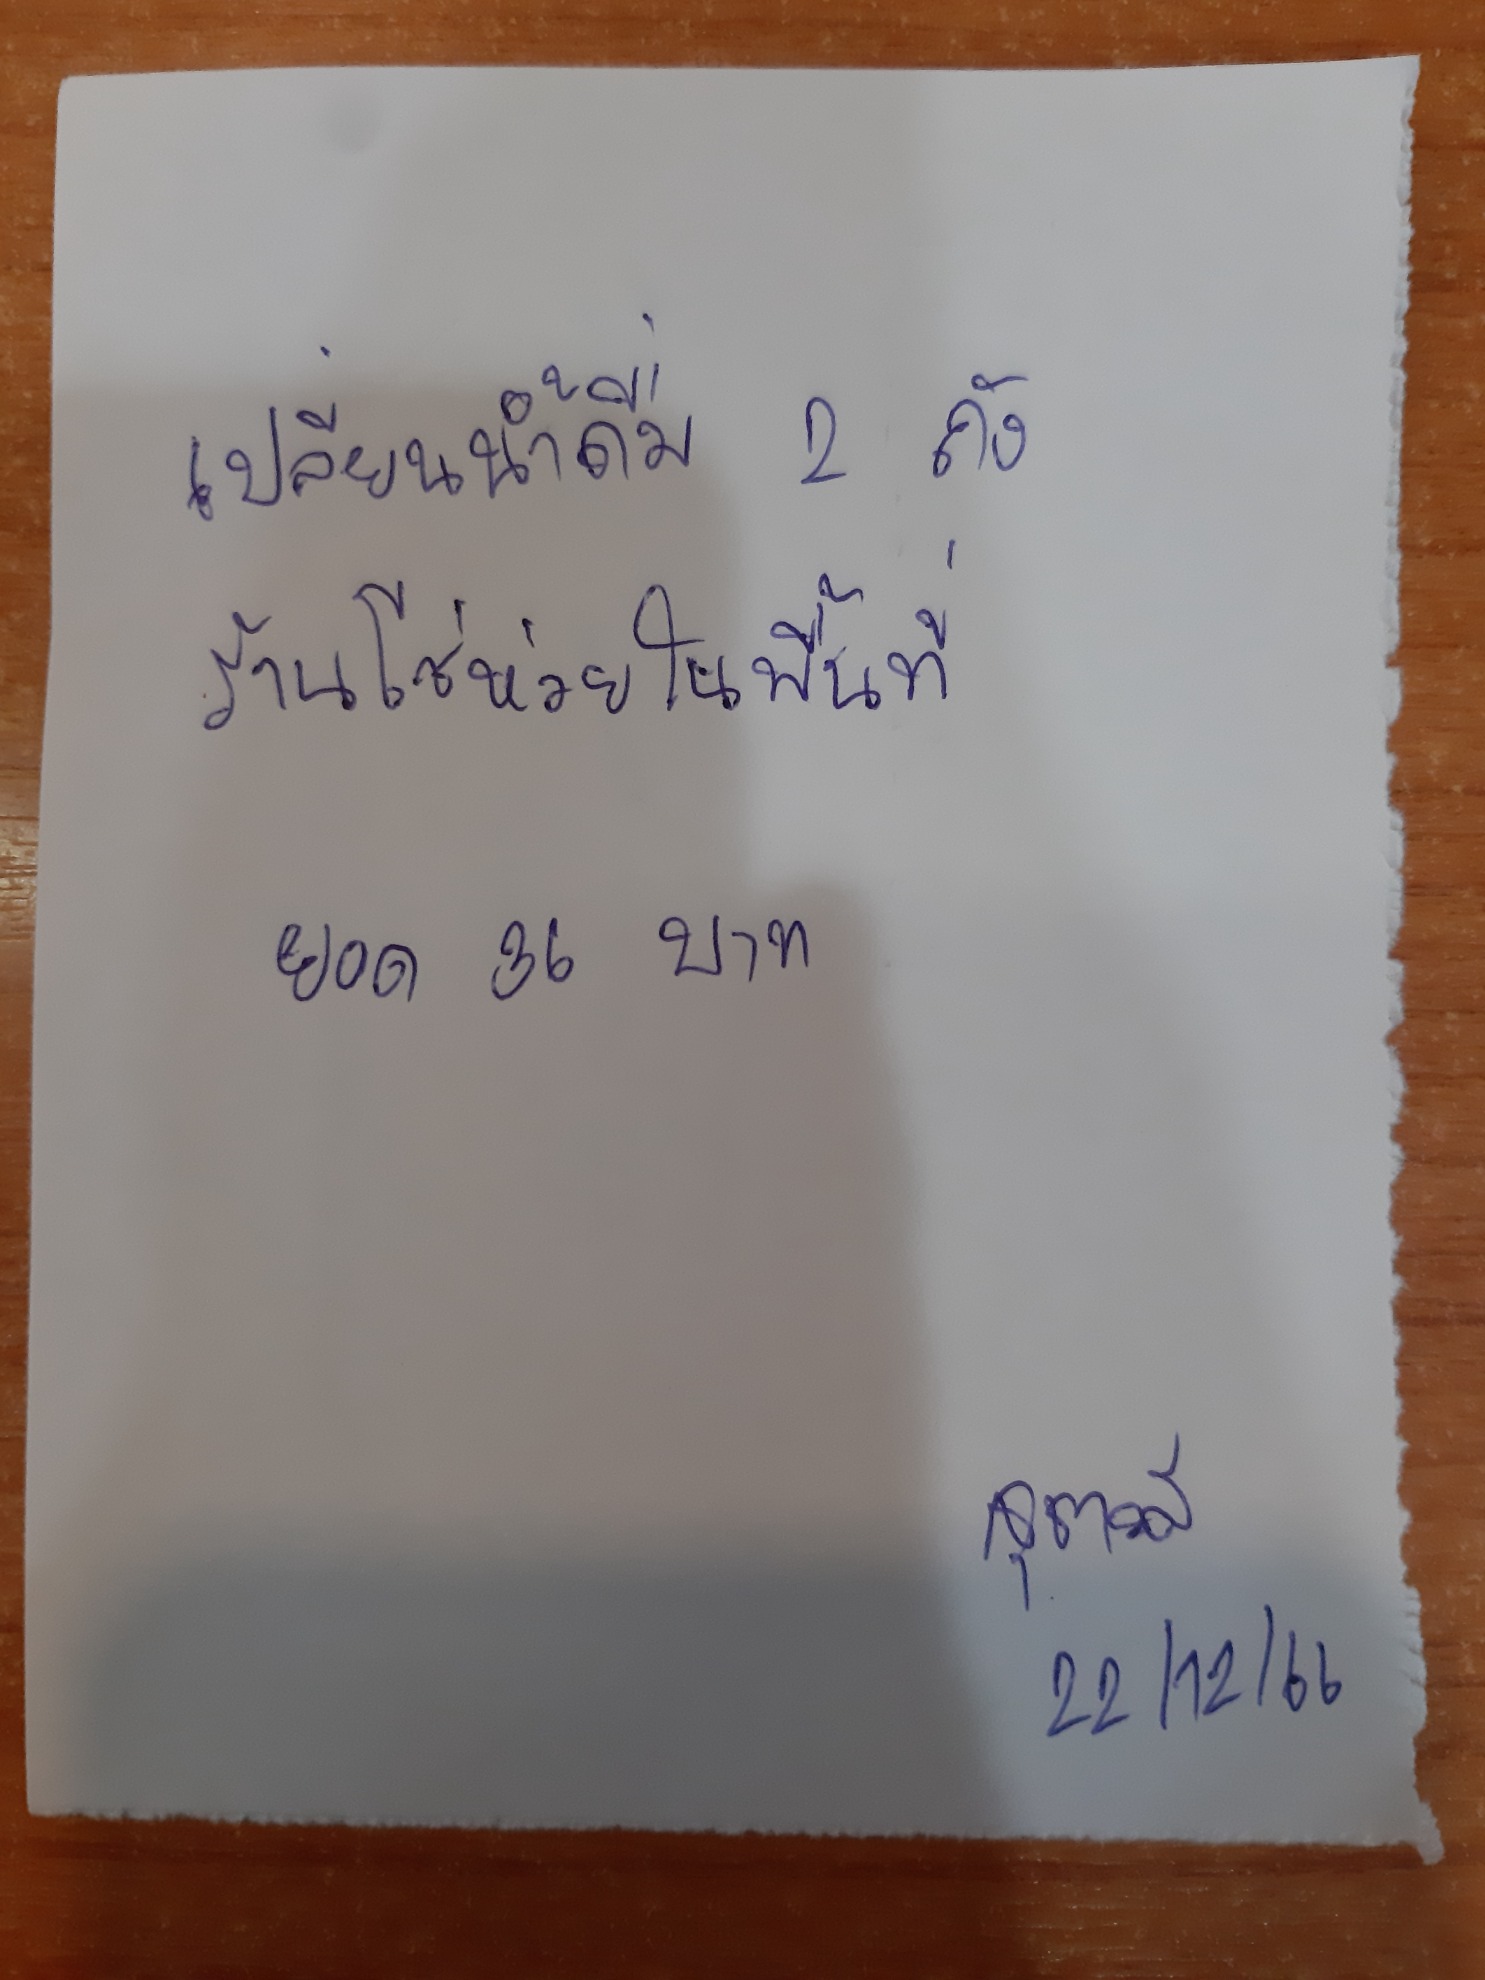 เปลี่ยนน้ำดื่ม 2 ถัง
ร้านโชห่วยในพื้นที่
ยอด 36 บาท
22/12/66